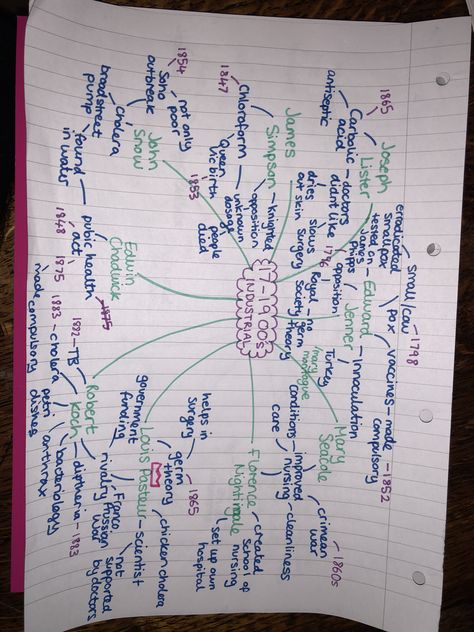 17-1900s
INDUSTRIAL
Joseph
Lister
1865
Carbolic
acid
antiseptic
doctors
didnt like
dries
out skin
slows
surgery
opposition
James
Simpson
Chloroform
1847
Queen
Vic birth
1853
unknown
dosage
people
died
knighted
opposition
John
Snow
1854
Soho
outbreak
not only
poor
cholera
broadstreet
pump
found
in water
Edwin
Chadwick
public health
act
1848
1875
1875
Robert
Koch
1882 - TB
1883 - cholera
made compulsory
petri
dishes
anthrax
bacteriology
diptheria - 1883
Louis Pasteur
government
funding
rivalry
Franco
Prussian
war
not
supported
by doctors
scientist
chicken cholera
germ
theory
1865
helps in
surgery
Florence
Nightingale
created
school of
nursing
set up own
hospital
Mary
Seacole
crimean
war
1860s
cleanliness
improved
nursing
conditions
care
Edward
Jenner
1796
tested on
James
Phipps
Royal
Society
no
germ
theory
innoculation
Turkey
mary
montague
small/cow
pox
1798
erradicated
smallpox
vaccines - made
compulsory
1852